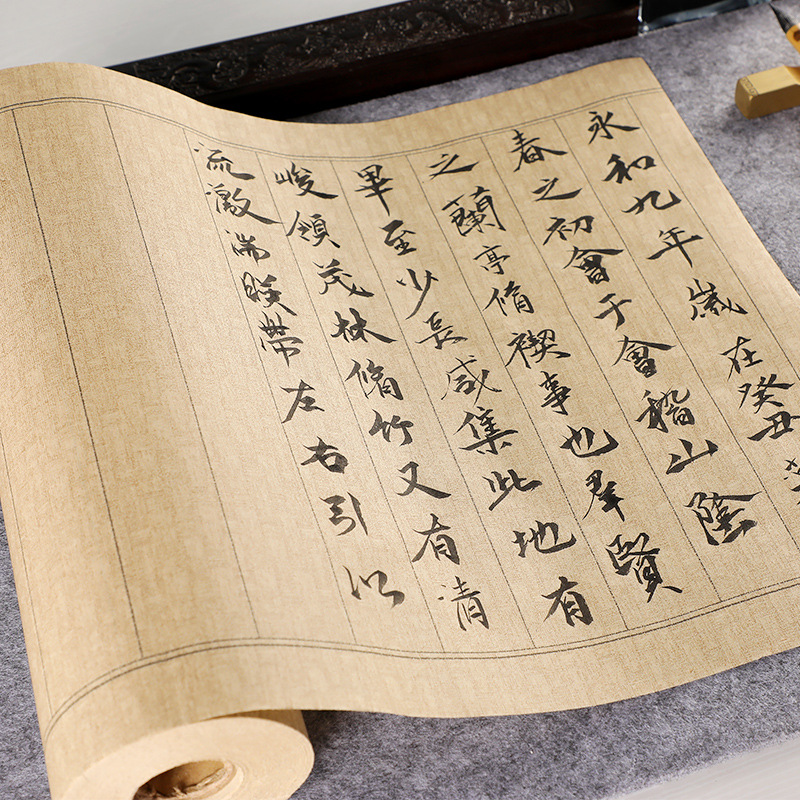 永和九年歲在癸丑
春之初會于會稽山陰
之蘭亭脩禊事也羣賢
畢至少長咸集此地有
峻領茂林脩竹又有清
流激湍暎帶左右引以